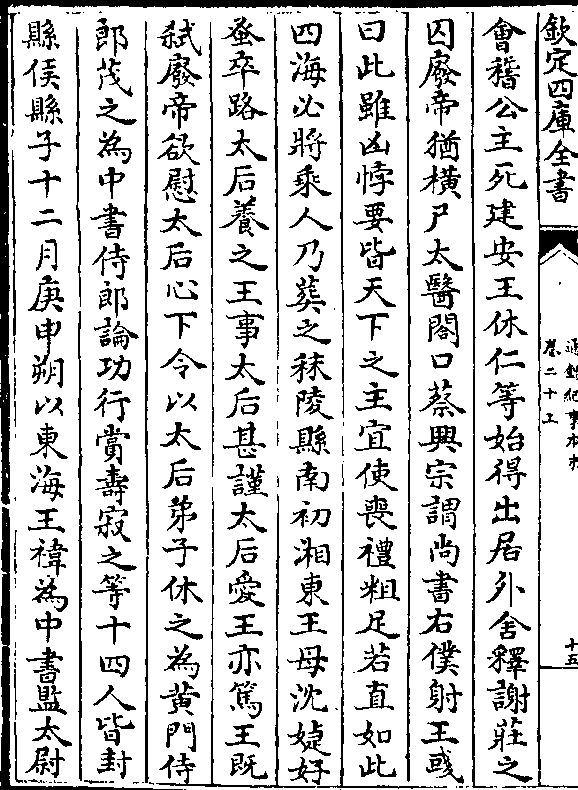 欽定四庫全書
通鑑紀事本末
卷二十上
十五
會稽公主死建安王休仁等始得出居外舍釋謝莊之
囚廢帝猶橫尸太醫閤口蔡興宗謂尚書右僕射王彧
曰此雖凶悖要皆天下之主宜使喪禮粗足若直如此
四海必將乘人乃葬之秣陵縣南初湘東王母沈婕妤
蚤卒路太后養之王事太后甚謹太后愛王亦篤王既
弑廢帝欲慰太后心下令以太后弟子休之為黄門侍
郎茂之為中書侍郎論功行賞壽寂之等十四人皆封
縣侯縣子十二月庚申朔以東海王禕為中書監太尉